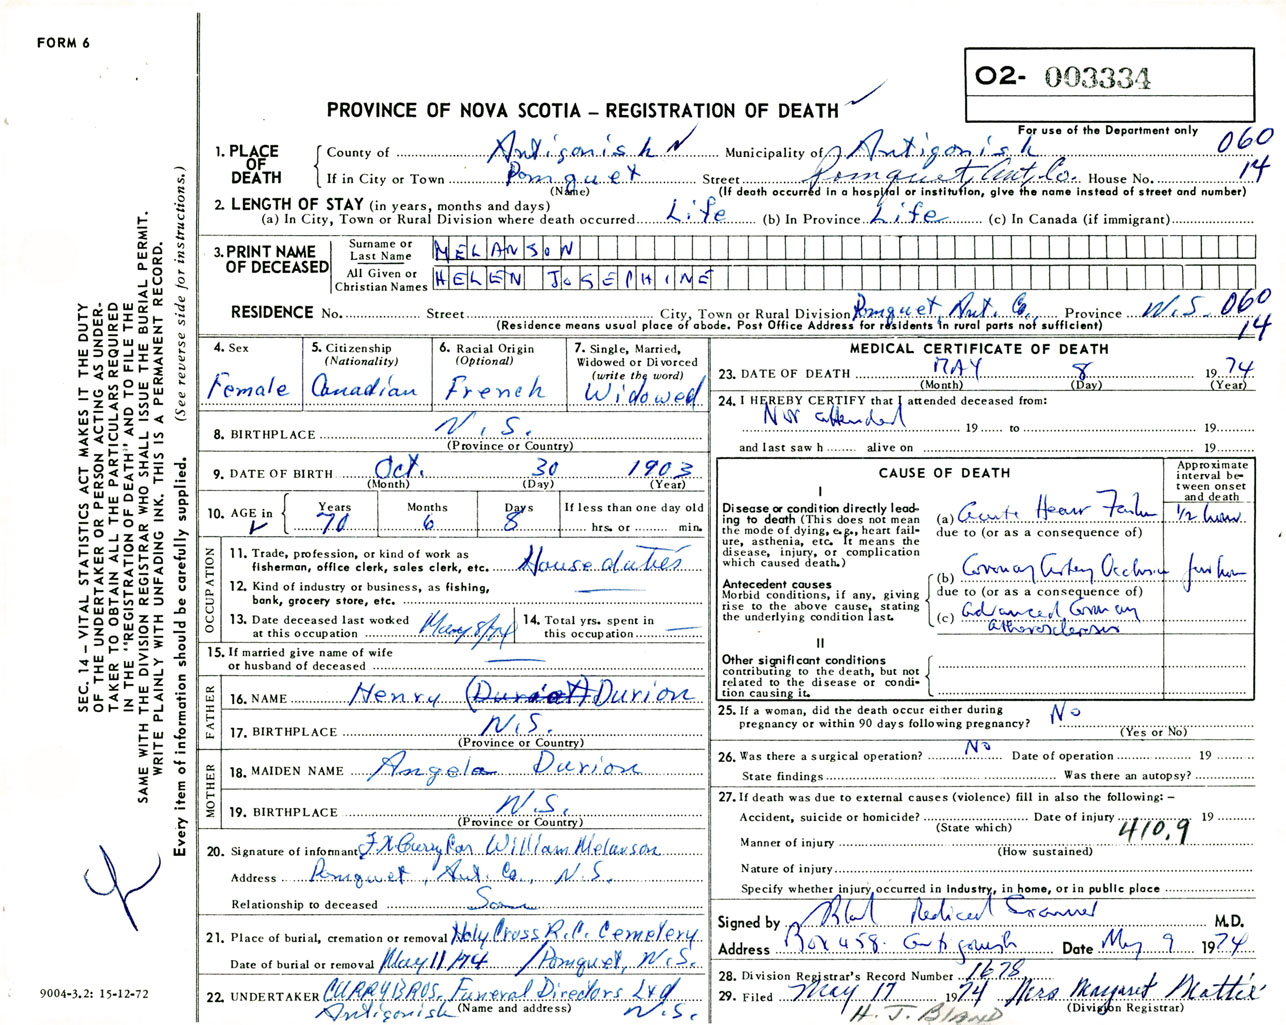 FORM 6
O2- 003334
PROVINCE OF NOVA SCOTIA – REGISTRATION OF DEATH
For use of the Department only
060
14
1. PLACE OF DEATH
County of Antigonish Municipality of Antigonish
If in City or Town Pomquet Street Pomquet Ant. Co. House No.
(Name) (If death occurred in a hospital or institution, give the name instead of street and number)
2. LENGTH OF STAY (in years, months and days)
(a) In City, Town or Rural Division where death occurred Life (b) In Province Life (c) In Canada (if immigrant)
3. PRINT NAME OF DECEASED
Surname or Last Name MELANSON
All Given or Christian Names HELEN JOSEPHINE
RESIDENCE No. Street City, Town or Rural Division Pomquet, Ant. Co., Province N.S. 060
(Residence means usual place of abode. Post Office Address for residents in rural parts not sufficient) 14
4. Sex Female
5. Citizenship (Nationality) Canadian
6. Racial Origin (Optional) French
7. Single, Married, Widowed or Divorced (write the word) Widowed
8. BIRTHPLACE N.S.
(Province or Country)
9. DATE OF BIRTH Oct. 30 1903
(Month) (Day) (Year)
10. AGE in Years Months Days If less than one day old
70 6 8 hrs. or min.
OCCUPATION
11. Trade, profession, or kind of work as fisherman, office clerk, sales clerk, etc. House duties
12. Kind of industry or business, as fishing, bank, grocery store, etc.
13. Date deceased last worked at this occupation May 8/74
14. Total yrs. spent in this occupation
15. If married give name of wife or husband of deceased
FATHER
16. NAME Henry (Duriot) Durion
17. BIRTHPLACE N.S.
(Province or Country)
MOTHER
18. MAIDEN NAME Angela Durion
19. BIRTHPLACE N.S.
(Province or Country)
20. Signature of informant F X Curry for William Melanson
Address Pomquet, Ant. Co., N.S.
Relationship to deceased Son
21. Place of burial, cremation or removal Holy Cross R.C. Cemetery
Date of burial or removal May 11/74 / Pomquet, N.S.
22. UNDERTAKER CURRY BROS. Funeral Directors Ltd
(Name and address)
Antigonish N.S.
MEDICAL CERTIFICATE OF DEATH
23. DATE OF DEATH MAY 8 1974
(Month) (Day) (Year)
24. I HEREBY CERTIFY that I attended deceased from:
Not attended 19 to 19
and last saw h alive on 19
CAUSE OF DEATH
Approximate interval between onset and death
I
Disease or condition directly leading to death (This does not mean the mode of dying, e.g., heart failure, asthenia, etc. It means the disease, injury, or complication which caused death.)
(a) Acute Heart Failure 1/2 hour
due to (or as a consequence of)
Antecedent causes
Morbid conditions, if any, giving rise to the above cause, stating the underlying condition last.
(b) Coronary Artery Occlusion
due to (or as a consequence of)
(c) Advanced Coronary atherosclerosis
II
Other significant conditions contributing to the death, but not related to the disease or condition causing it.
25. If a woman, did the death occur either during pregnancy or within 90 days following pregnancy? No
(Yes or No)
26. Was there a surgical operation? No Date of operation 19
State findings Was there an autopsy?
27. If death was due to external causes (violence) fill in also the following: –
Accident, suicide or homicide? Date of injury 19
(State which) 410.9
Manner of injury
(How sustained)
Nature of injury
Specify whether injury occurred in Industry, in home, or in public place
Signed by Medical Examiner M.D.
Address Box 458 Antigonish Date May 9 1974
28. Division Registrar's Record Number 1678
29. Filed May 17 1974 Mrs Margaret Mattie
(Division Registrar)
H. J. BLAND
SEC. 14 – VITAL STATISTICS ACT MAKES IT THE DUTY
OF THE UNDERTAKER OR PERSON ACTING AS UNDER-
TAKER TO OBTAIN ALL THE PARTICULARS REQUIRED
IN THE "REGISTRATION OF DEATH" AND TO FILE THE
SAME WITH THE DIVISION REGISTRAR WHO SHALL ISSUE THE BURIAL PERMIT.
WRITE PLAINLY WITH UNFADING INK. THIS IS A PERMANENT RECORD.
Every item of information should be carefully supplied. (See reverse side for instructions.)
9004-3.2: 15-12-72